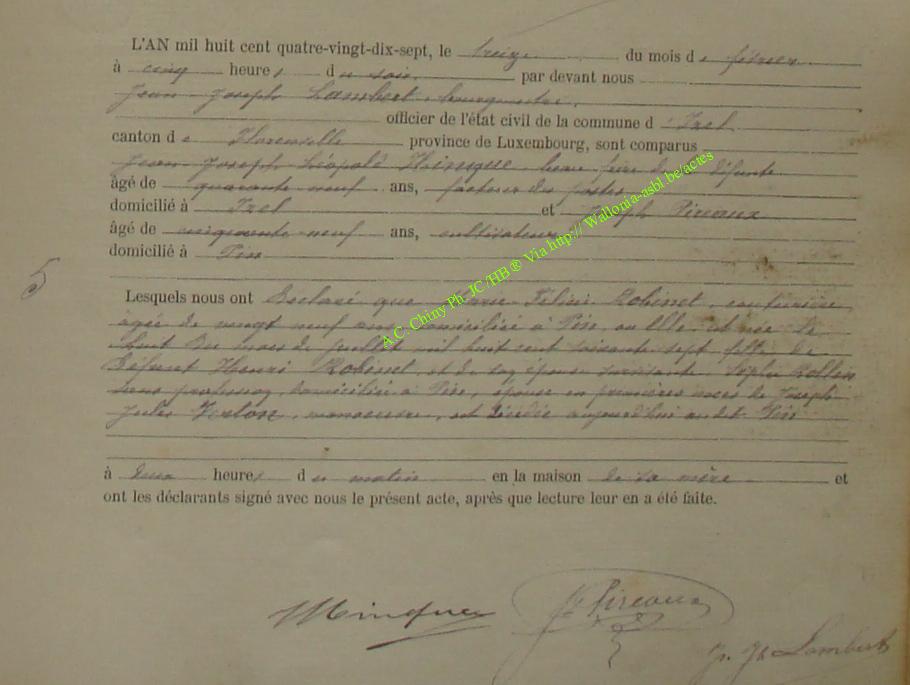 L'AN mil huit cent quatre-vingt-dix-sept, le treize du mois de février
à cinq heures du soir par devant nous
Jean Joseph Lambert, bourgmestre,
officier de l'état civil de la commune d'Izel
canton de Florenville province de Luxembourg, sont comparus
Jean Joseph Léopold beau frère de la défunte
âgé de quarante neuf ans, facteur des postes
domicilié à Izel et Joseph Pireaux
âgé de cinquante neuf ans, cultivateur
domicilié à Pin
5
Lesquels nous ont déclaré que Félicie Robinet, couturière
âgée de vingt neuf ans domiciliée à Pin, où elle est née le
huit du mois de juillet mil huit cent soixante sept fille de
défunt Henri Robinet, et de son épouse survivante Rollin
sans profession, domiciliée à Pin, épouse en premières noces de Joseph
Jules manoeuvre, est décédée aujourd'hui audit Pin
à deux heures du matin en la maison de sa mère et
ont les déclarants signé avec nous le présent acte, après que lecture leur en a été faite.
Pireaux
J. Jh Lambert
A.C. Chiny Ph. JC/HB ® Via http:// Wallonia-asbl.be/actes